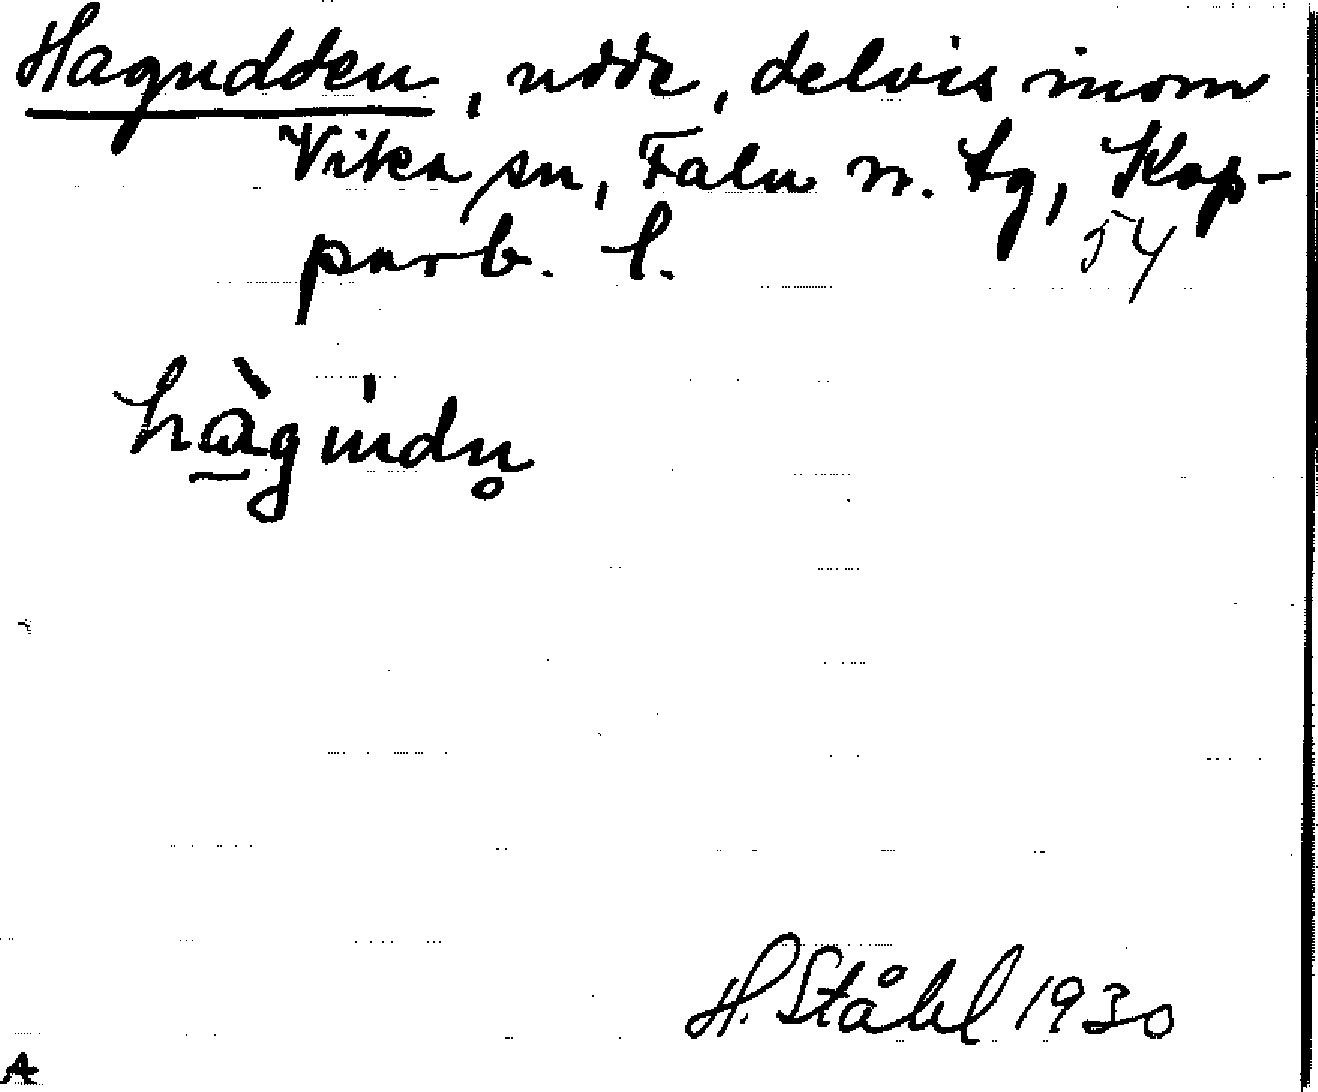 Hagudden, udde, delvis inom
Vika sn, Falu n. tg, Kop-
parb. l.
54
H. Ståhl 1930
A